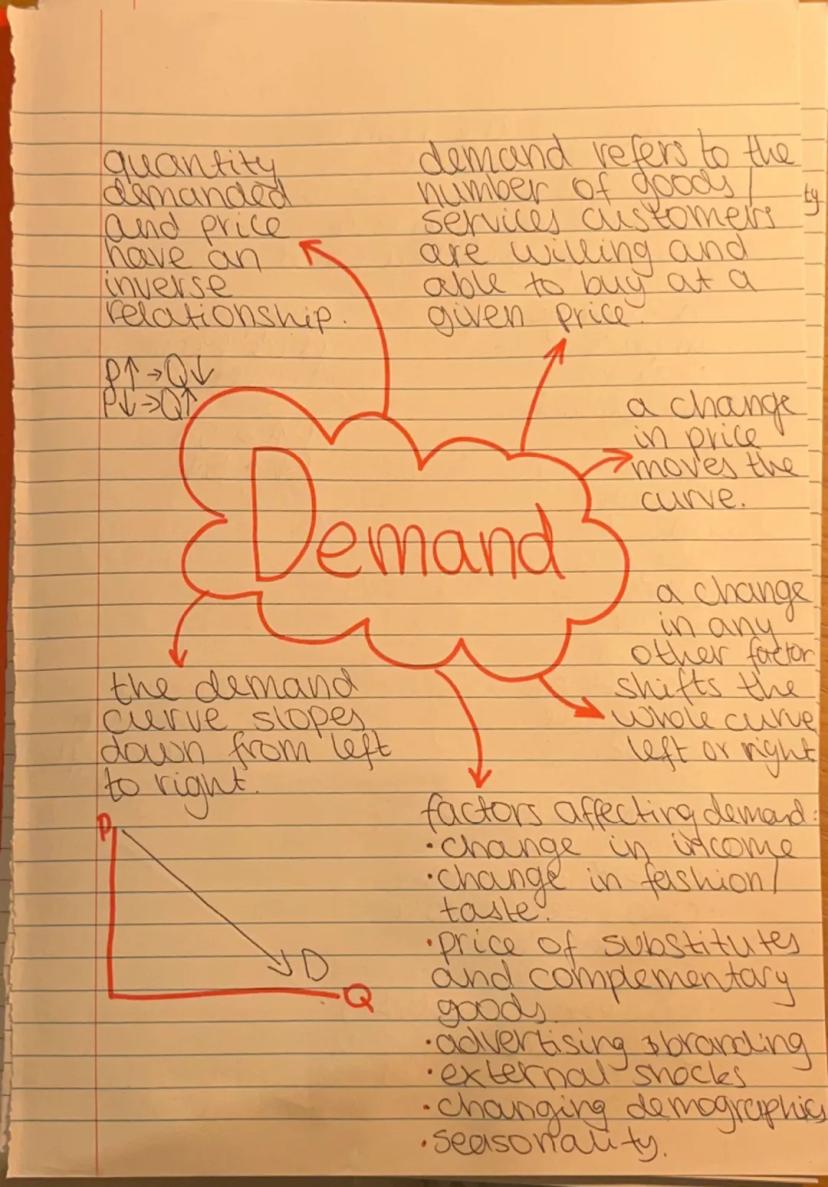 quantity
demanded
and price
have an
inverse
relationship.
P↑→Q↓
P↓→Q↑
demand refers to the
number of goods/
services customers
are willing and
able to buy at a
given price.
a change
in price
moves the
curve.
Demand
a change
in any
other factor
shifts the
whole curve
left or right
the demand
curve slopes
down from left
to right.
P
D
Q
factors affecting demand:
•change in income
•change in fashion/
taste.
•price of substitutes
and complementary
goods.
•advertising & branding
•external shocks
•changing demographics
•seasonality.
ty